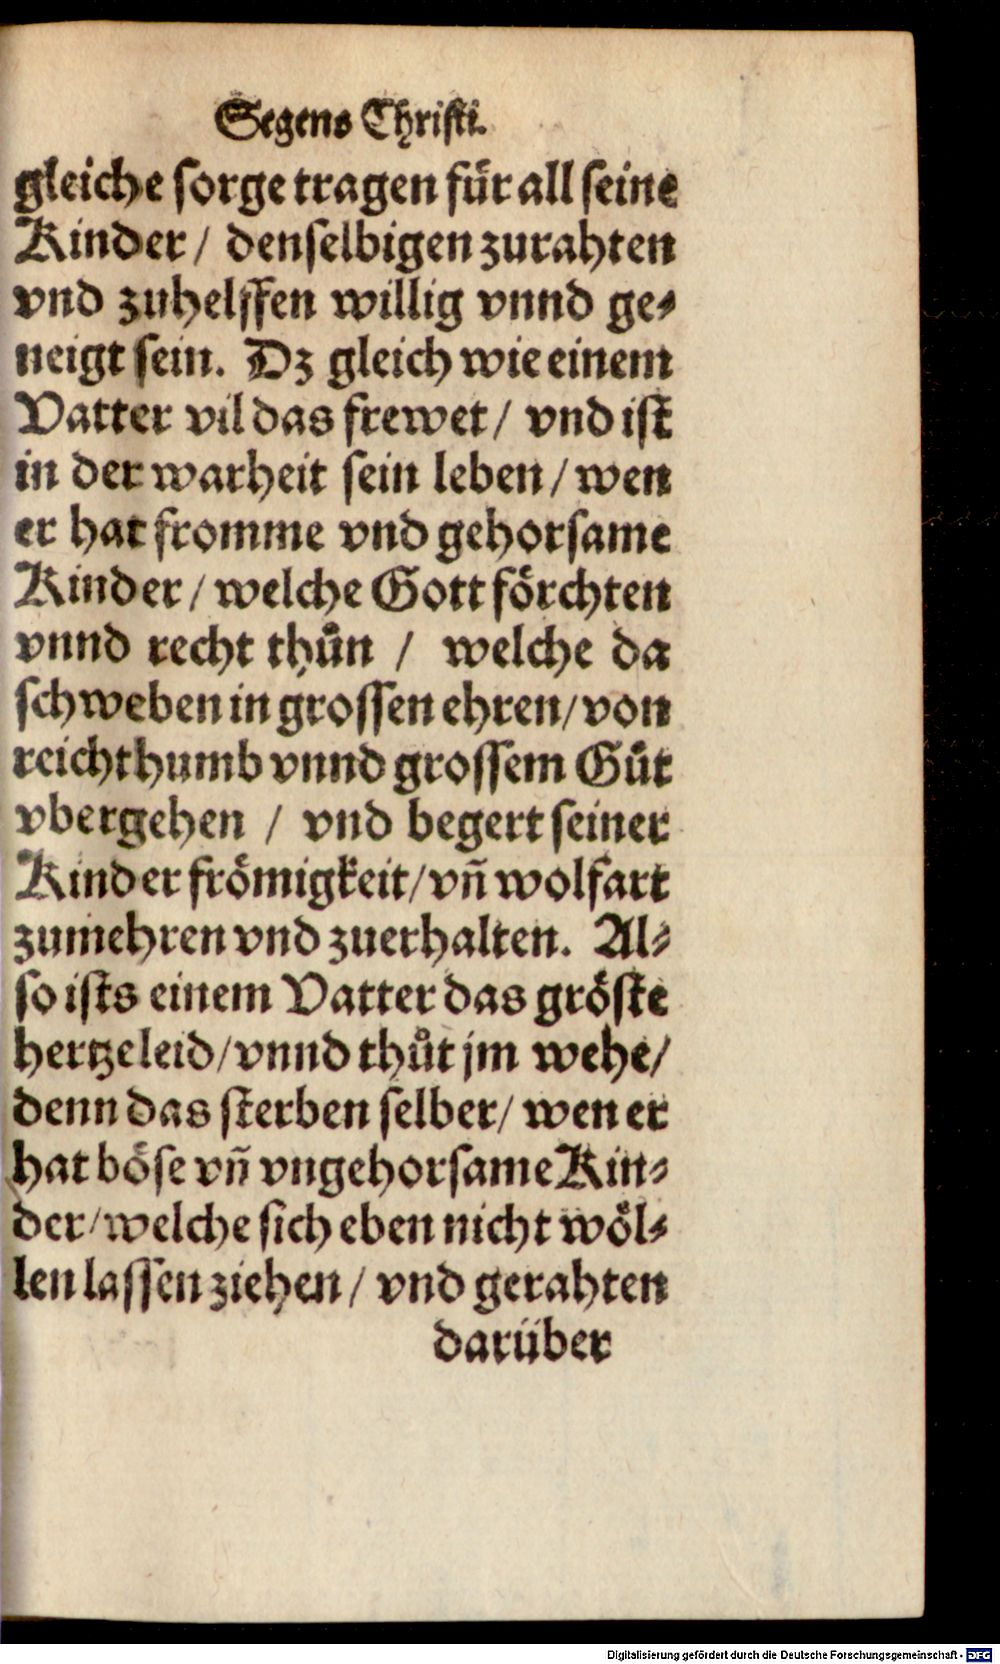 Segens Christi.
gleiche sorge tragen für all seine
Kinder / denselbigen zurahten
vnd zuhelffen willig vnnd ge⸗
neigt sein. Dz gleich wie einem
Vatter vil das frewet / vnd ist
in der warheit sein leben / wen
er hat fromme vnd gehorsame
Kinder / welche Gott förchten
vnnd recht thůn / welche da
schweben in grossen ehren / von
reichthumb vnnd grossem Gůt
vbergehen / vnd begert seiner
Kinder frömigkeit / vñ wolfart
zumehren vnd zuerhalten. Al⸗
so ists einem Vatter das gröste
hertzeleid / vnnd thůt jm wehe /
denn das sterben selber / wen er
hat böse vñ vngehorsame Kin⸗
der / welche sich eben nicht wöl⸗
len lassen ziehen / vnd gerahten
darüber
Digitalisierung gefördert durch die Deutsche Forschungsgemeinschaft - DFG